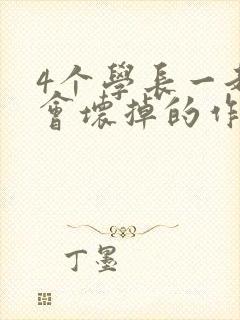 4个學長一
會壞掉的作
丁墨